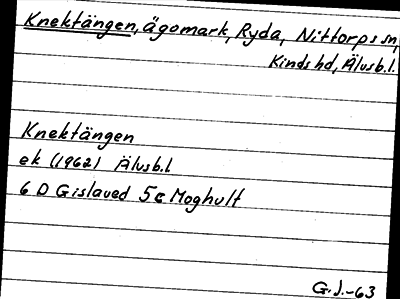 Knektängen, ägomark, Ryda, Nittorps sn,
Kinds hd, Älvsb.l.
Knektängen
ek (1962) Älvsb.l
6 D Gislaved 5c Moghult
G.J.-63